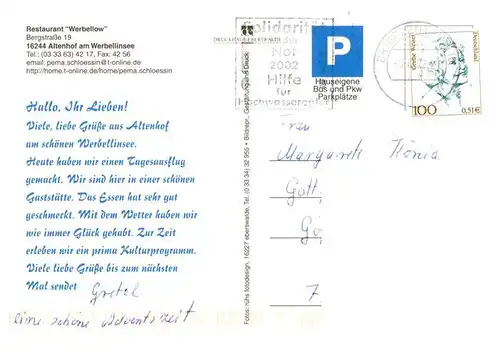 Restaurant "Werbellow"
Bergstraße 19
16244 Altenhof am Werbellinsee
Tel.: 03 33 63) 42 17, Fax: 42 56
email: pema.schloessin@t-online.de
http://home.t-online.de/home/pema.schloessin
Hallo, Ihr Lieben!
Viele, liebe Grüße aus Altenhof
am schönen Werbellinsee.
Heute haben wir einen Tagesausflug
gemacht. Wir sind hier in einer schönen
Gaststätte. Das Essen hat sehr gut
geschmeckt. Mit dem Wetter haben wir
wie immer Glück gehabt. Zur Zeit
erleben wir ein prima Kulturprogramm.
Viele liebe Grüße bis zum nächsten
Mal sendet Gretel
eine schöne Adventszeit
Fotos: nühs fotodesign, 16227 eberswalde, Tel. (0 33 34) 32 955 • Bildrepr., Gestaltung und Druck:
Solidarität
Not
2002
Hilfe
für
Hochwasseropfer
P
Hauseigene
Bus und Pkw
Parkplätze
100
0,51€
Frau
Margarete König
Gott
Gö
7